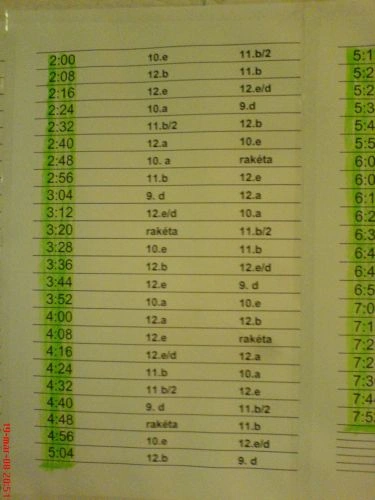 2:00 10.e 11.b/2
2:08 12.b 11.b
2:16 12.e 12.e/d
2:24 10.a 9.d
2:32 11.b/2 12.b
2:40 12.a 10.e
2:48 10. a rakéta
2:56 11.b 12.e
3:04 9. d 12.a
3:12 12.e/d 10.a
3:20 rakéta 11.b/2
3:28 10.e 11.b
3:36 12.b 12.e/d
3:44 12.e 9. d
3:52 10.a 10.e
4:00 12.a 12.b
4:08 12.e rakéta
4:16 12.e/d 12.a
4:24 11.b 10.a
4:32 11 b/2 12.e
4:40 9. d 11.b/2
4:48 rakéta 11.b
4:56 10.e 12.e/d
5:04 12.b 9. d
19-mar-08 20:51